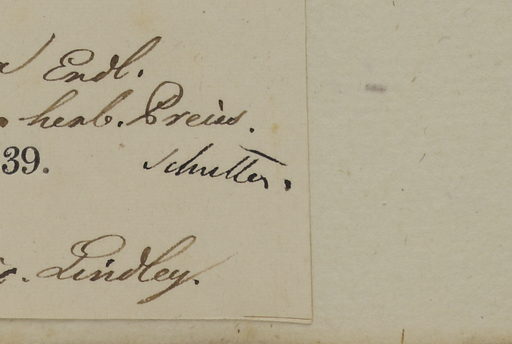 Endl.
herb. Preiss.
39. Schutter.
Lindley.